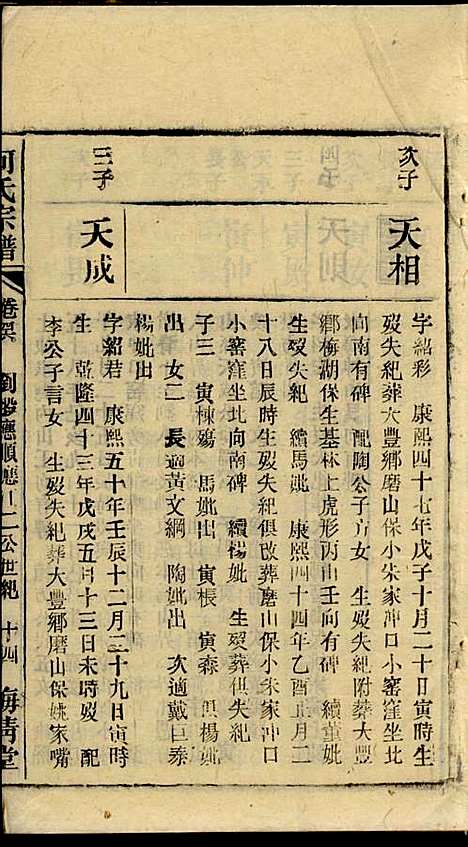 次子
天相
字紹彩 康熙四十七年戊子十月二十日寅時生
歿失紀葬大豐鄉磨山保小朱家冲口小窰窪坐北
向南有碑 配陶公子 女 生歿失紀附葬大豐
鄉梅湖保生基林上虎形丙山壬向有碑 續董妣
生歿失紀 續馬妣 康熙四十四年乙酉正月二
十八日辰時生歿失紀俱改葬磨山保小朱家冲口
小窰窪坐北向南碑 續楊妣 生歿葬俱失紀
子三 寅棟殤 馬妣出 寅棖 寅森 俱楊妣
出 女二 長適黃文綱 陶妣出 次適戴巨泰
楊妣出
三子
天成
字紹君 康熙五十年壬辰十二月二十九日寅時
生 乾隆四十三年戊戌五月十三日未時歿 配
李公子言女 生歿失紀葬大豐鄉磨山保姚家嘴
何氏宗譜 卷 劉 應順應 二公世紀 十四 海靖堂